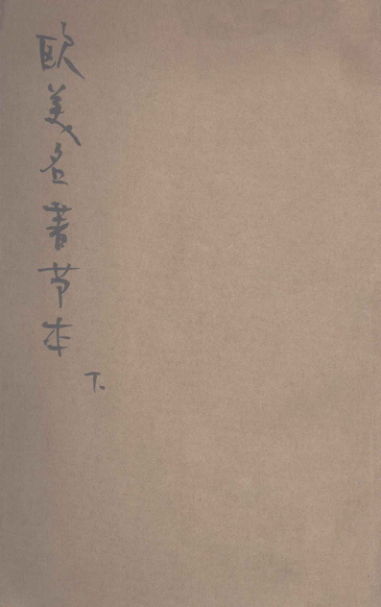 欧美名著节本
下